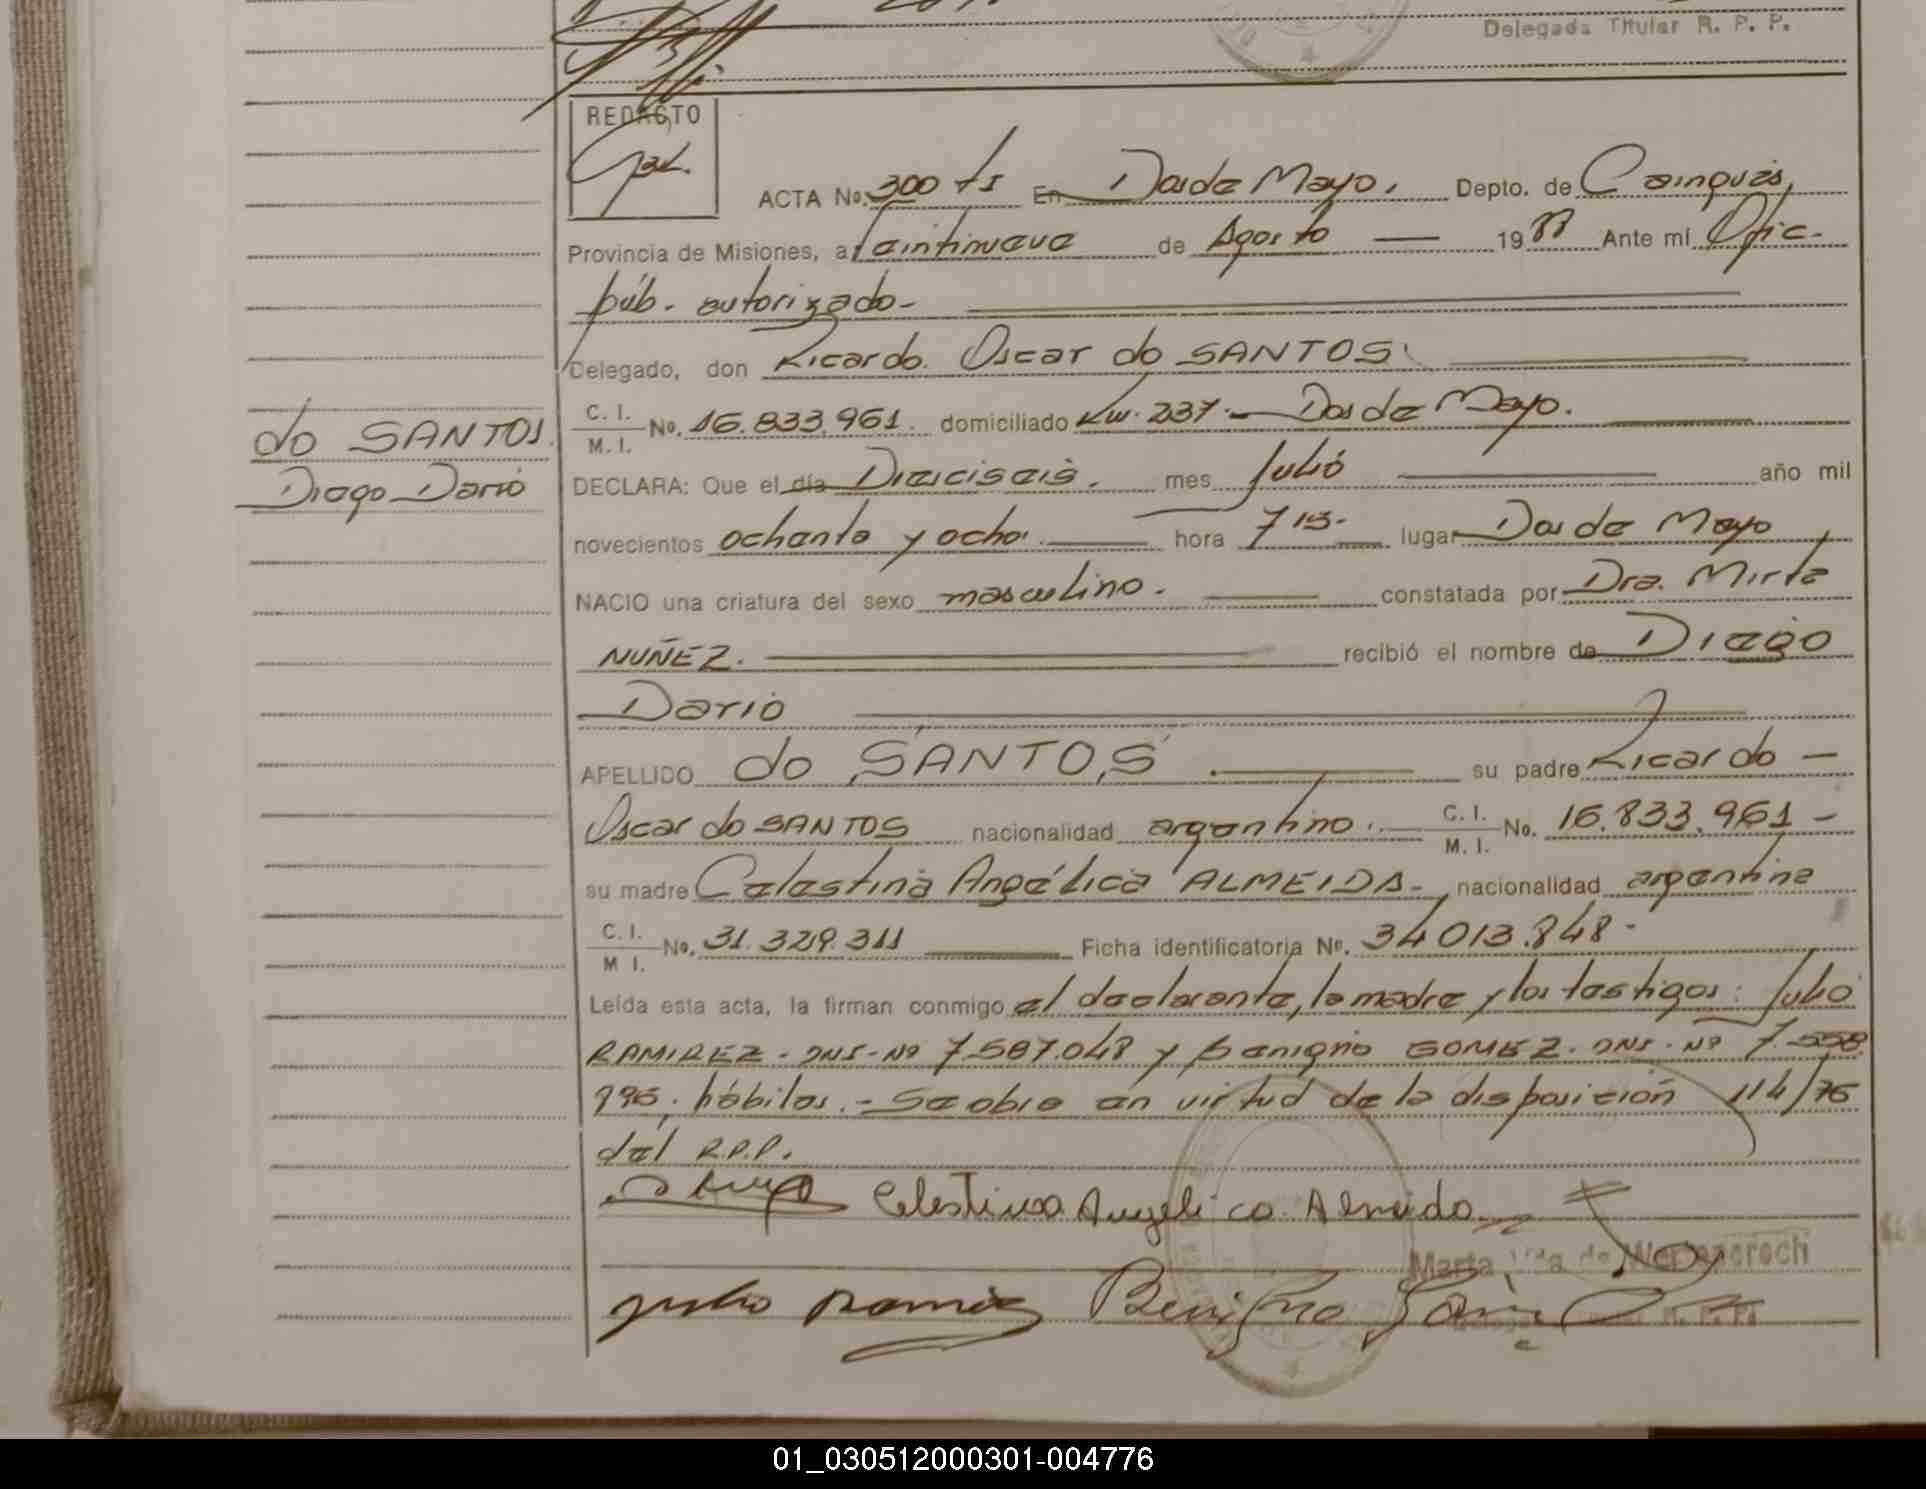 Delegada Titular R. P. P.
REDACTO
ACTA No. 300 tI En Dos de Mayo, Depto. de Cainguás,
Provincia de Misiones, a veintinueve de Agosto 1988 Ante mí Ofic.
púb. autorizado-
Delegado, don Ricardo Oscar do SANTOS
C. I.
M. I.
No. 16.833.961. domiciliado Km. 237. Dos de Mayo.
do SANTOS.
Diego Dario
DECLARA: Que el día Dieciseis. mes Julio año mil
novecientos ochenta y ocho. hora 7 15- lugar Dos de Mayo
NACIO una criatura del sexo masculino. constatada por Dra. Mirta
NUÑEZ. recibió el nombre de Diego
Dario
APELLIDO do SANTOS su padre Ricardo
Oscar do SANTOS nacionalidad argentino. C. I.
M. I. No. 16.833.961
su madre Celestina Angélica ALMEIDA- nacionalidad argentina
C. I.
M I. No. 31.329.311 Ficha identificatoria No. 34013.848-
Leída esta acta, la firman conmigo el declarante, la madre y los testigos: Julio
RAMIREZ - DNI - Nº 7.587.048 y Benigno GOMEZ. DNI - Nº 7.558
996, hábiles.- Se obra en virtud de la disposición 114/76
del R.P.P.
Celestina Angelica Almeida
Marta Vda de
Julio Ramirez Benigno Gomez
R. P. P.
01_030512000301-004776